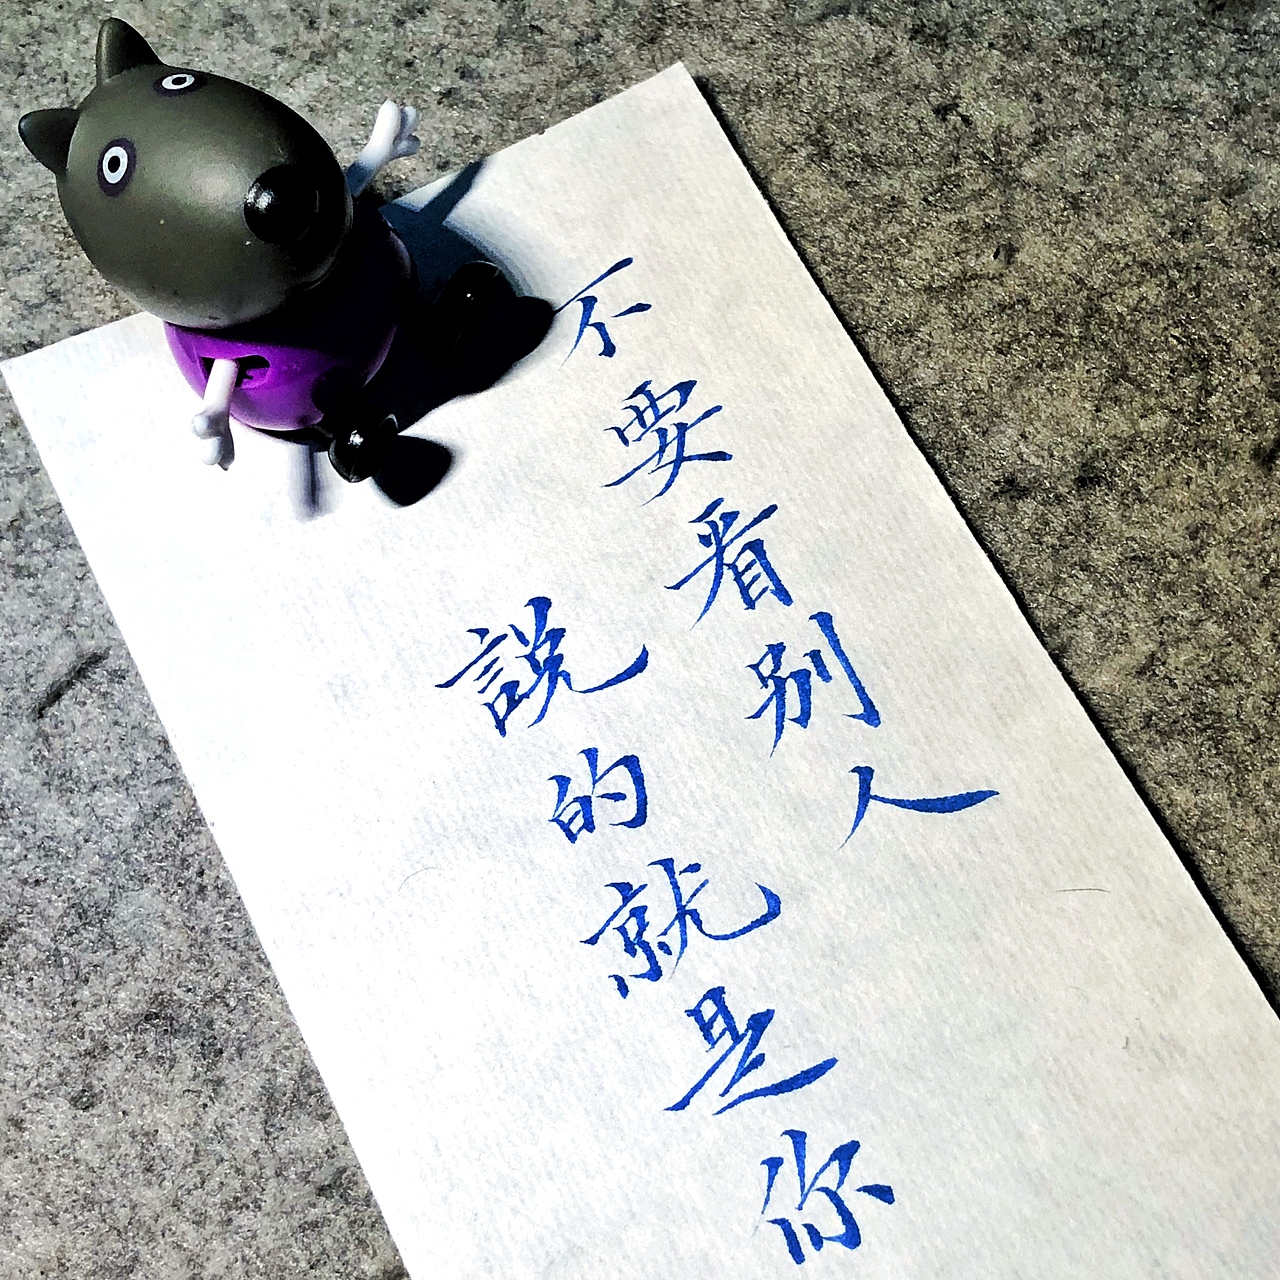 不要看别人
說的就是你